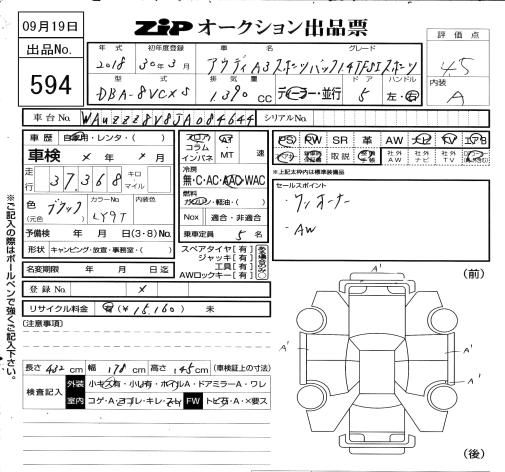 09月19日
ZIP オークション出品票
出品No.
594
年式 初年度登録 車名 グレード
2018 30年3月 アウディA3スポーツバック1.4TFSIスポーツ
型式 排気量 ドア ハンドル
DBA-8VCXS 1,390cc ディーラー・並行 5 左・右
評価点
4.5
内装
A
車台No. WAUZZZ8V8JA084644 シリアルNo.
車歴 自家用・レンタ・( )
車検 × 年 × 月
走行 37,368 キロ マイル
色(元色) ブラック カラーNo. LY9T 内装色
予備検 年 月 日(3・8)No.
形状 キャンピング・放壹・事務室・( )
名変期限 年 月 日迄
登録No. ×
リサイクル料金 有(¥ ) 未
フロア AT
コラム
インパネ MT 速
冷房
無・C・AC・AAC・WAC
燃料
ガソリン・軽油・( )
Nox 適合・非適合
乗車定員 5 名
スペアタイヤ[有]
ジャッキ[有]
工具[有]
AWロックキー[有]
ある場合のみ〇
PS PW SR 革 AW ナビ TV エアB
取説 社外AW 社外ナビ 社外TV
※上記太枠内は標準装備品
セールスポイント
・ワンオーナー
・AW
(注意事項)
長さ 432 cm 幅 178 cm 高さ 145 cm (車検証上の寸法)
検査記入 外装 小キズ有・小凹有・ホイルA・ドアミラーA・ワレ
室内 コゲ・A・ヨゴレ・キレ・スレ FW トビ石・A・×要ス
(前)
A'
A'
A'
A'
(後)
※ご記入の際はボールペンで強くご記入下さい。